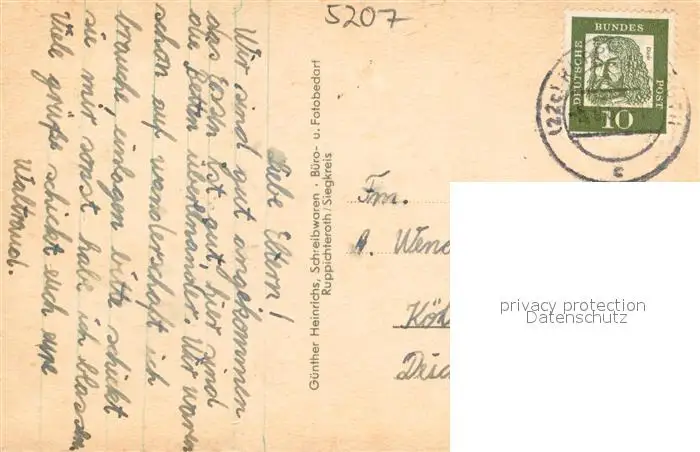 5207
DEUTSCHE
BUNDES
POST
Dürer
10
(22c)
c
Liebe Eltern!
Wir sind gut angekommen
das Essen ist gut, hier sind
die Betten übereinander. Wir waren
schon auf wanderschaft ich
brauche einlagen bitte schickt
sie mir sonst habe ich blassen
Viele grüße schickt euch eure
Waltraud.
Günther Heinrichs, Schreibwaren · Büro- u. Fotobedarf
Ruppichteroth/Siegkreis
Fm.
A. Wend
Köl
privacy protection
Datenschutz